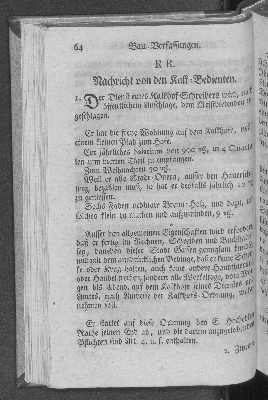 64 Bau-Verfassungen.
R R.
Nachricht von den Kalk-Bedienten.
1. Der Dienst eines Kalkhof-Schreibers wird, nach
öffentlichem Anschlage, dem Meistbietenden zu-
geschlagen.
Er hat die freye Wohnung auf dem Kalkhofe, nebst
einem kleinen Platz zum Hofe.
Ein jährliches Salarium von 900 m̃, in 4 Quarta-
len zum vierten Theil zu empfangen.
Zum Weihnachten 30 m̃.
Weil er alle Stadt-Onera, ausser den
bezahlen muß, so hat er deßfalls jährlich
zu geniessen.
Sechs Faden ordinair Brenn-Holz, und
solches klein zu machen und aufzuwinden, 9 m̃.
Ausser den allgemeinen Eigenschaften wird erfordert,
daß er fertig im Rechnen, Schreiben und Buchhal-
ten, daneben dieser Stadt Gassen genugsam kundig,
und mit dem ausdrücklichen Bedinge, daß er keine Schen-
ke oder Krug halten, auch keine andere Handthierung
oder Handel treiben, sondern alle Werkeltage, vom Mor-
gen bis Abend, auf dem Kalkhofe seines Dienstes und
Amtes, nach Anweise der Kalkhofs-Ordnung, wahr-
nehmen soll.
Er leistet auf diese Ordnung den E. Hochedlen
Raths seinen Eyd ab, und die darum anzugelobenden
Pflichten sind Art. 4. u. f. enthalten.
2. Zweene